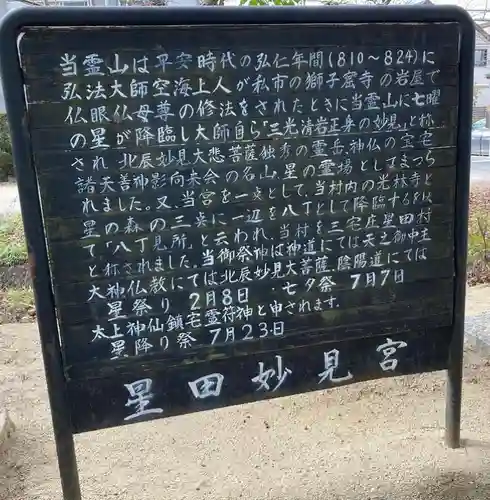 当霊山は平安時代の弘仁年間(810〜824)に
弘法大師空海上人が私市の獅子窟寺の岩屋で
仏眼仏母尊の修法をされたときに当霊山に七曜
の星が降臨し大師自ら「三光清岩正身の妙見」と称
され 北辰妙見大悲菩薩独秀の霊岳、神仏の宝宅
諸天善神影向来会の名山、星の霊場としてまつら
れました。又、当宮を一点として、当村内の光林寺と
星の森の三点に一辺を八丁として降臨するを以
て「八丁見所」と云われ 当村を三宅庄星田村
と称されました。当御祭神は神道にては天之御中主
大神 仏教にては北辰妙見大菩薩、陰陽道にては
太上神仙鎮宅霊符神と申されます。
星祭り 2月8日 七夕祭 7月7日
星降り祭 7月23日
星田妙見宮